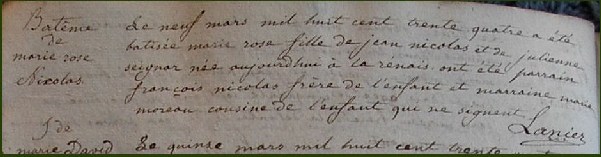 Batême
de
marie rose
Nicolas.
Le neuf mars mil huit cent trente quatre a été
batisée marie rose fille de jean nicolas et de julienne
seignar née aujourdhui à la renais ont été parrain
françois nicolas frère de l'enfant et marraine marie
moreau cousine de l'enfant qui ne signent
Lanier
J de
marie David
Le quinze mars mil huit cent trente